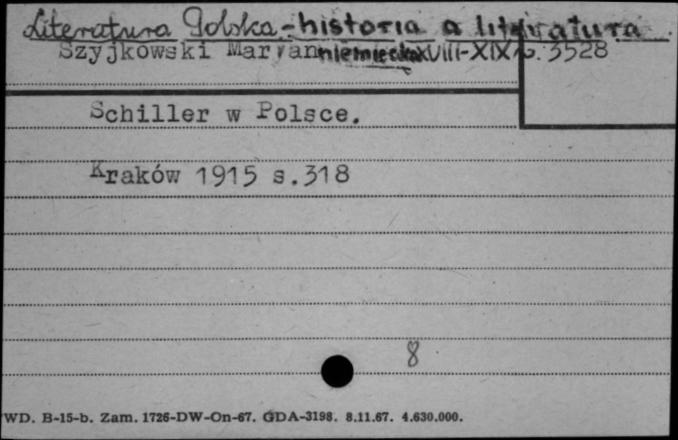 Literatura Polska - historia a literatura
Szyjkowski Maryan niemiecka XVIII-XIX w. 3528
Schiller w Polsce.
Kraków 1915 s.318
8
WD. B-15-b. Zam. 1726-DW-On-67. GDA-3198. 8.11.67. 4.630.000.